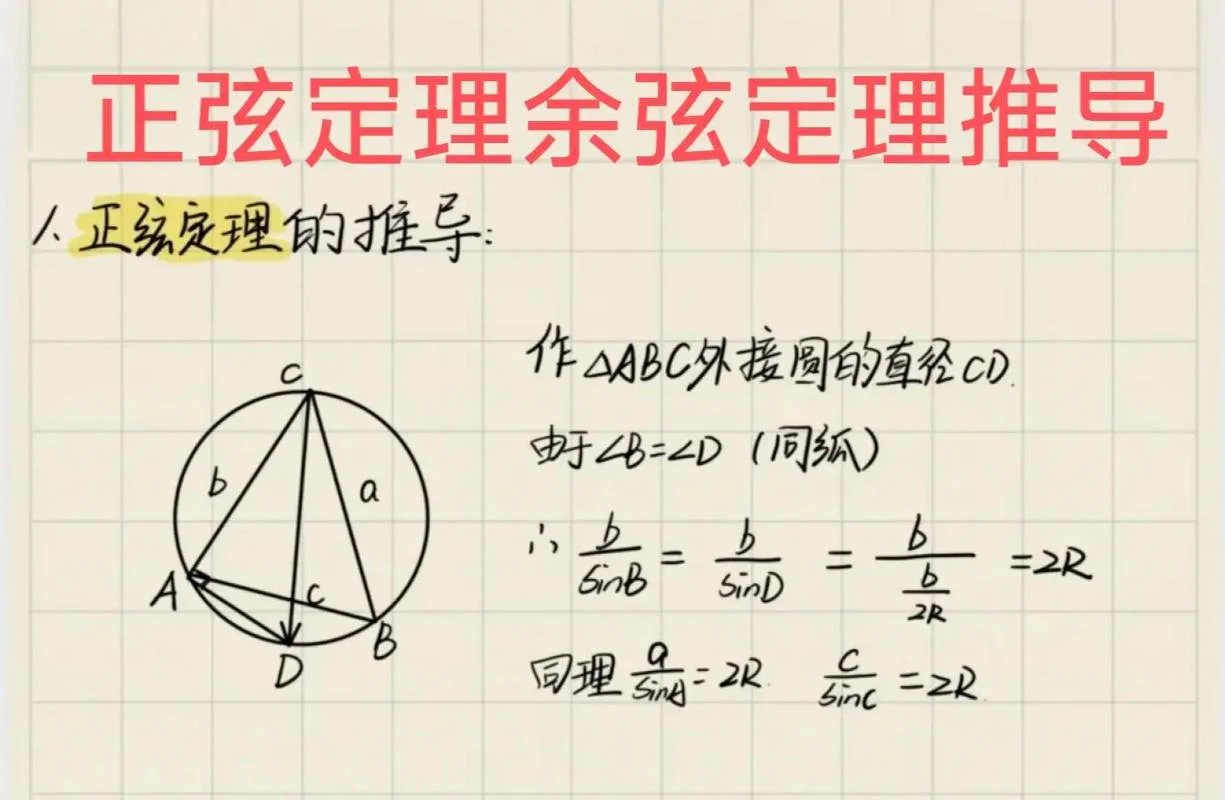 正弦定理余弦定理推导
1、正弦定理的推导:
作△ABC外接圆的直径CD.
由于∠B=∠D (同弧)
∴ b/sinB = b/sinD = b/(b/2R) =2R
同理 a/sinA = 2R. c/sinC =2R.
C
b
a
A
c
B
D